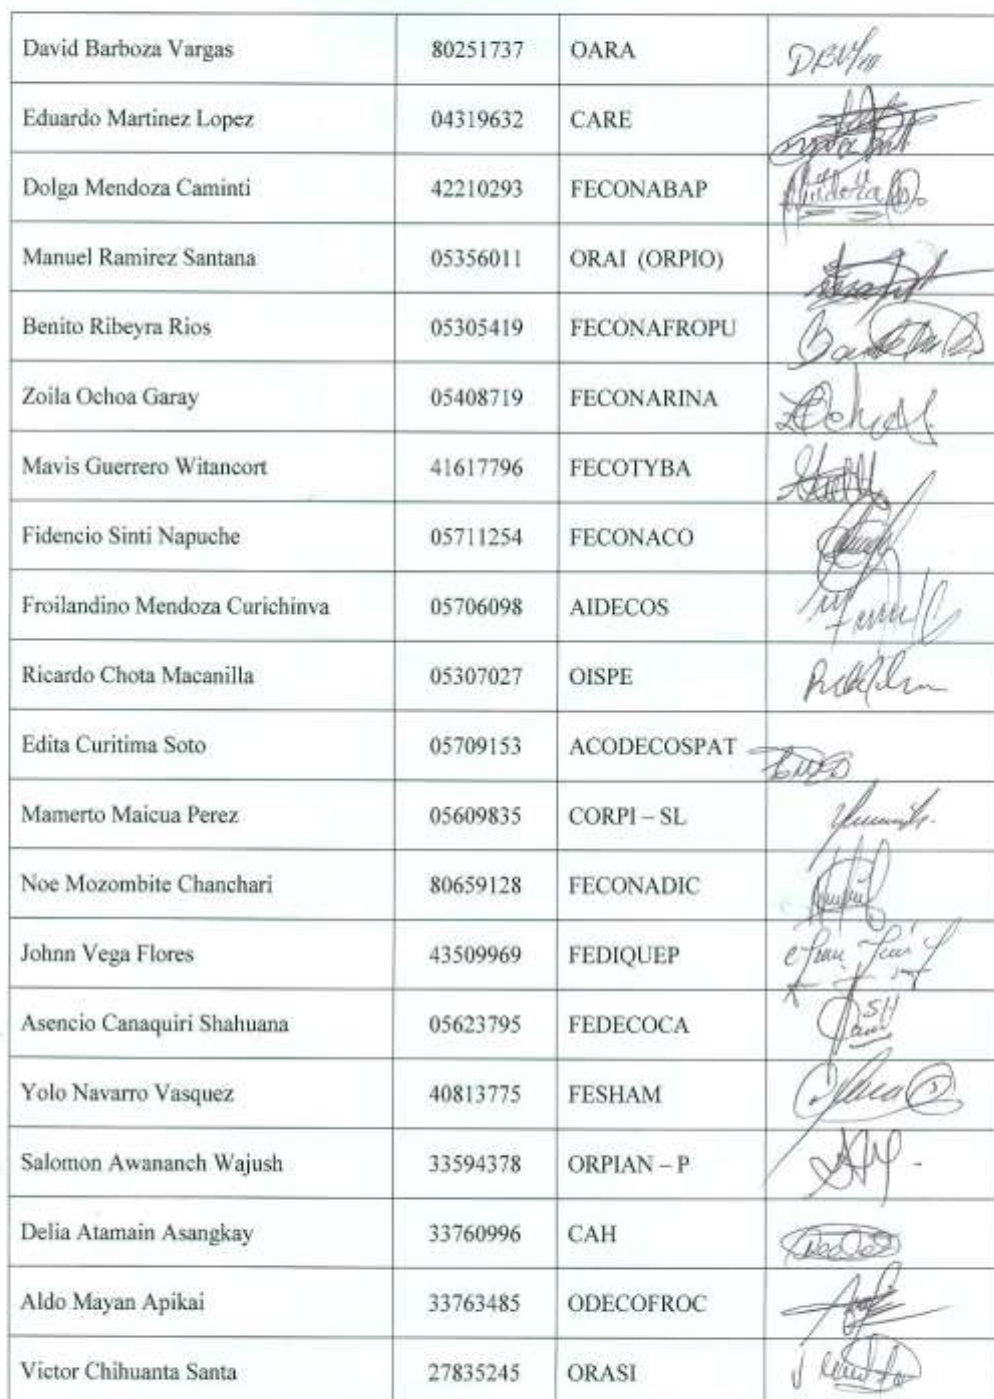 David Barboza Vargas 80251737 OARA DBV
Eduardo Martinez Lopez 04319632 CARE
Dolga Mendoza Caminti 42210293 FECONABAP
Manuel Ramirez Santana 05356011 ORAI (ORPIO)
Benito Ribeyra Rios 05305419 FECONAFROPU
Zoila Ochoa Garay 05408719 FECONARINA
Mavis Guerrero Witancort 41617796 FECOTYBA
Fidencio Sinti Napuche 05711254 FECONACO
Froilandino Mendoza Curichinva 05706098 AIDECOS
Ricardo Chota Macanilla 05307027 OISPE
Edita Curitima Soto 05709153 ACODECOSPAT
Mamerto Maicua Perez 05609835 CORPI – SL
Noe Mozombite Chanchari 80659128 FECONADIC
Johnn Vega Flores 43509969 FEDIQUEP
Asencio Canaquiri Shahuana 05623795 FEDECOCA
Yolo Navarro Vasquez 40813775 FESHAM
Salomon Awananch Wajush 33594378 ORPIAN – P
Delia Atamain Asangkay 33760996 CAH
Aldo Mayan Apikai 33763485 ODECOFROC
Victor Chihuanta Santa 27835245 ORASI